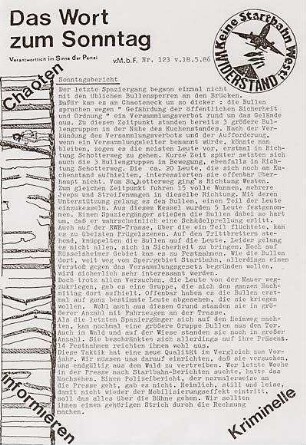 Das Wort
zum Sonntag
Verantwortlich im Sinne der Panel v.M.b.F. Nr. 123 v.18.5.86
Keine Startbahn West
WIDERSTAND
Chaoten
Sonntagsbericht
Der letzte Spaziergang begann einmal nicht
mit den üblichen Bullensperren an den Brücken.
Dafür kam es am Chaoteneck um so dicker : die Bullen
sprechen wegen " Gefährdung der öffentlichen Sicherheit
und Ordnung " ein Versammlungsverbot rund um das Gelände
aus. Zu diesem Zeitpunkt standen bereits 3 größere Bul-
lengruppen in der Nähe des Küchenstandes. Nach der Verkün-
dung des Versammlungsverbots und der Aufforderung,
wenn ein Versammlungsleiter benannt wird, könnte man
bleiben, zogen die meisten Leute vor, erstmal in Rich-
tung Schotterweg zu gehen. Kurze Zeit später setzten sich
auch die 3 Bullengruppen in Bewegung, ebenfalls in Rich-
tung Schotterweg. Die ca. 20 Leute, die sich noch am
Küchenstand aufhielten, interessierten die offenbar über-
haupt nicht. Von da ging's in Richtung Westen.
Zum gleichen Zeitpunkt fuhren 15 volle Wannen, mehrere
Jeeps und Streifenwagen in dieselbe Richtung. Mit deren
Unterstützung gelang es den Bullen, einen Teil der Leute
einzukesseln. Aus diesem Kessel wurden 5 Leute festgenom-
men. Einen Spaziergänger stießen die Bullen dabei so hart
um, daß er wahrscheinlich eine Schädelprellung erlitt.
Auch auf der RWE-Trasse, über die ein Teil flüchtete, kam
es zu Übergriffen. Auf den Trittbrettern ste-
hend, knüppelten die Bullen auf die Leute. Leider gelang
es nicht allen, sich in Sicherheit zu bringen. Doch auf
Rüsselsheimer Gebiet kam es zu Festnahmen. Wie die Bullen
dort, weit weg vom Sperrgebiet Startbahn, allerdings einen
Verstoß gegen das Versammlungsverbot begründen wollen,
wird sicherlich sehr interessant werden.
Doch trotz aller Versuchen, die Leute von der Mauer weg-
zukriegen, gab es eine Gruppe, die sich den ganzen Nach-
mittag dort aufhielt. Offenbar haben es die Bullen zeit-
mal auf ganz bestimmte Leute abgesehen, die sie kriegen
wollen. Wohl auch aus diesem Grund standen sie in größe-
rer Anzahl mit Fahrzeugen an der Trasse.
Als die letzten Spaziergänger sich auf den Heimweg mach-
ten, kam nochmal eine größere Gruppe Bullen aus dem Tor.
Auch im Wald und auf der Wiese standen sie noch in großer
Anzahl. Sie beschränkten sich allerdings auf ihre Präsenz.
14 Festnahmen reichten ihnen wohl aus.
Diese Taktik hat eine neue Qualität im Vergleich zum Vor-
jahr. Wir müssen uns darauf einrichten, daß sie versuchen,
uns endgültig aus dem Wald zu vertreiben. Vor letzte Woche
in der Presse nach Startbahn-Berichten suchte, hatte das
Nachsehen. Einen Polizeibericht, der normalerweise an
die Presse geht, gab es nicht. Heimlich, still und leise,
damit nicht wieder der Mobilisierungseffekt eintritt,
soll das alles über die Bühne gehen. Wir sollten
ihnen einen gehörigen Strich durch die Rechnung
machen.
informieren
Kriminelle